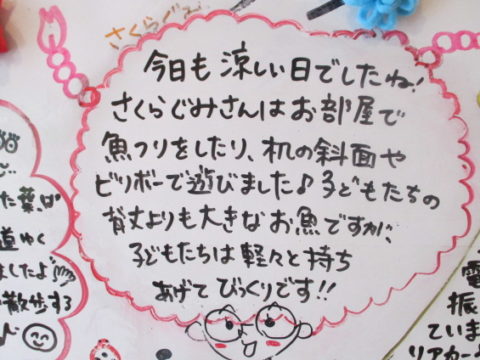 さくらぐみ
今日も涼しい日でしたね!
さくらぐみさんはお部屋で
魚つりをしたり、机の斜面や
ビリボーで遊びました♪子どもたちの
背丈よりも大きなお魚ですが、
子どもたちは軽々と持ち
あげてびっくりです!!
た葉、は
道ゆく
ましたよ
散歩する
電
振
ていま
リアカー